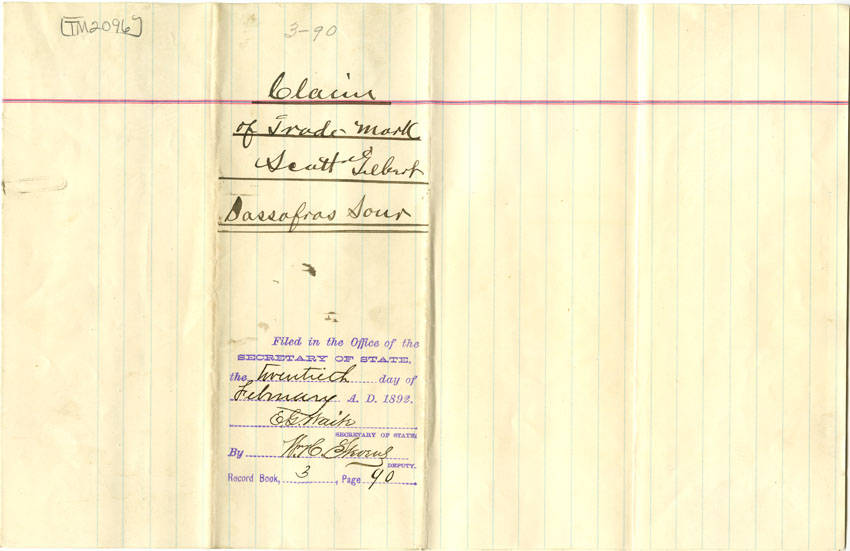 [TM2096]
3-90
Claim
of Trade-Mark
Scott and Gilbert
Sassafras Sour
Filed in the Office of the
SECRETARY OF STATE,
the twentieth day of
February A. D. 1892.
E G Waite
SECRETARY OF STATE.
By W. C.
DEPUTY.
Record Book, 3, Page 90.